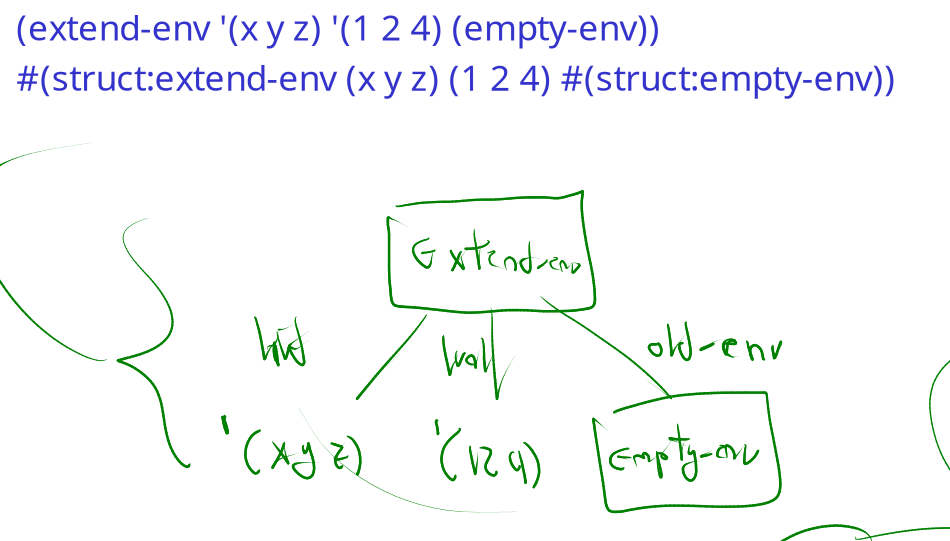 (extend-env '(x y z) '(1 2 4) (empty-env))
#(struct:extend-env (x y z) (1 2 4) #(struct:empty-env))
Extend-env
old-env
'(x y z) '(1 2 4)
Empty-env